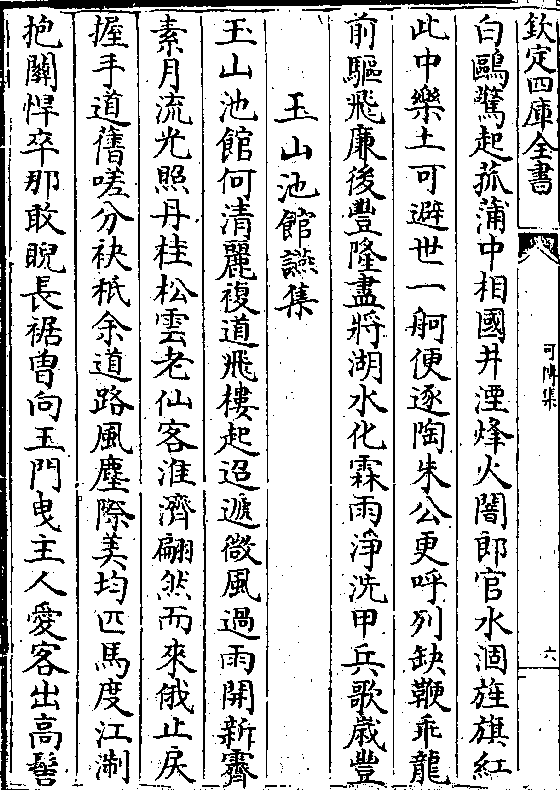 欽定四庫全書
可閒集
六
白鷗驚起菰蒲中相國井湮烽火闇郎官水涸旌旗紅
此中樂土可避世一舸便逐陶朱公更呼列缺鞭乖龍
前驅飛廉後豐隆盡將湖水化霖雨淨洗甲兵歌歲豐
玉山池館讌集
玉山池館何清麗複道飛樓起迢遞微風過雨開新霽
素月流光照丹桂松雲老仙客淮濟翩然而來俄止戾
握手道舊嗟分袂秪余道路風塵際美均匹馬度江淛
抱關悍卒那敢睨長裾曽向玉門曵主人愛客出高髻